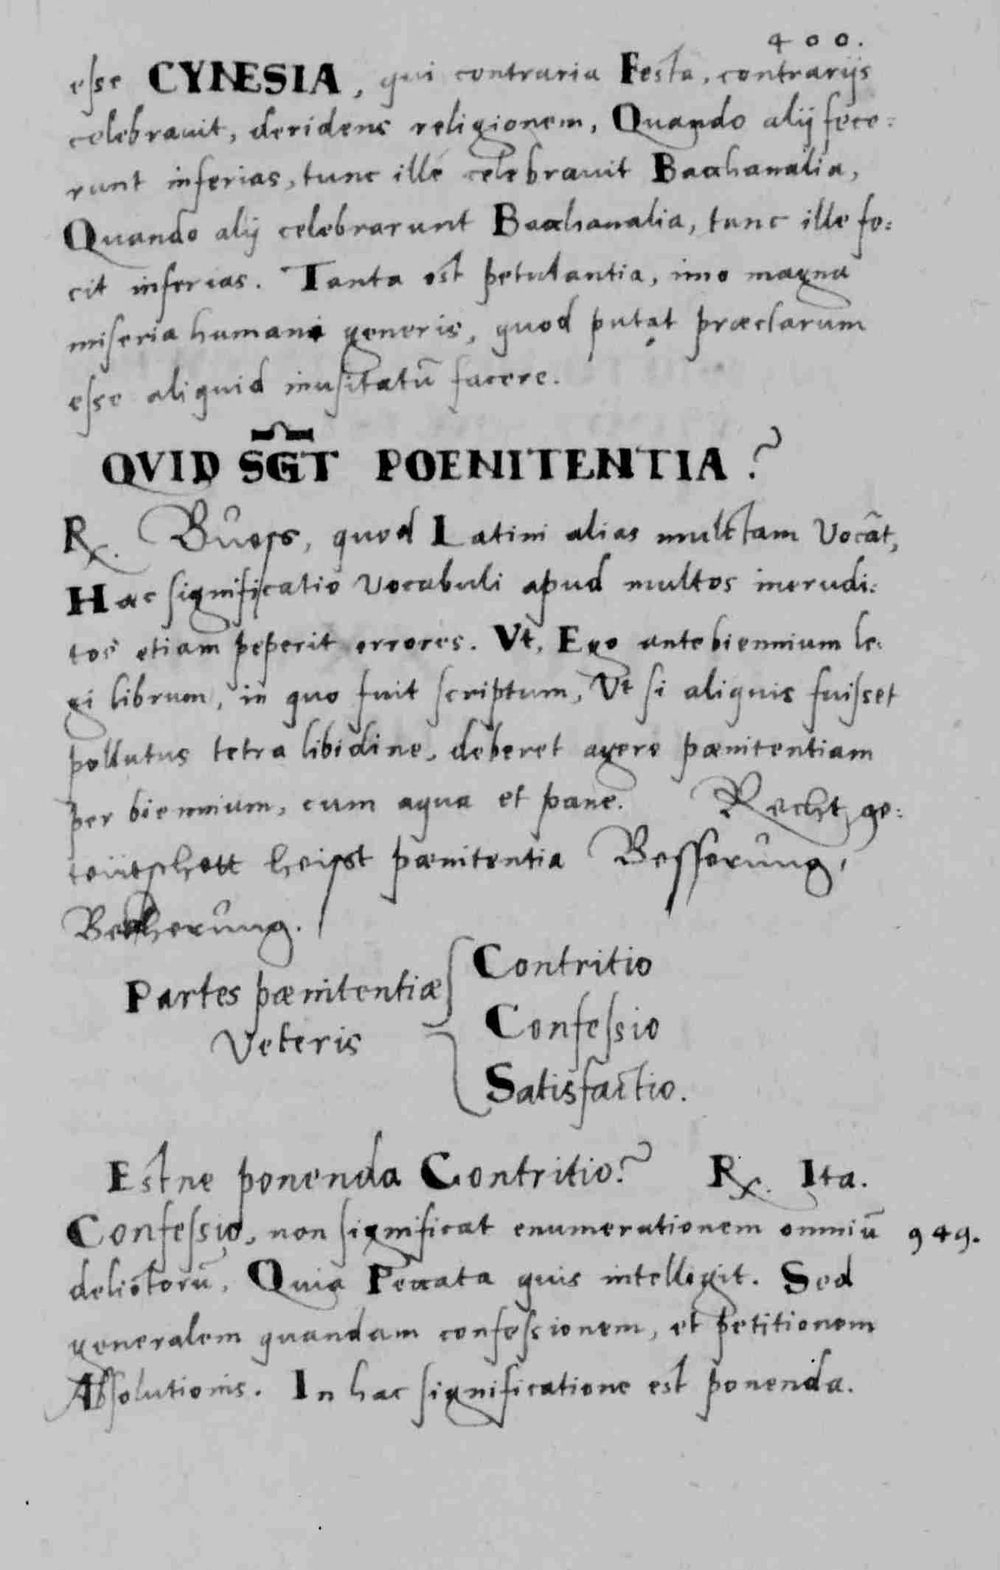 400.
esse CYNESIA, qui contraria Festa, contrarijs
celebrauit, deridens religionem, Quando alij fece:
runt inferias, tunc ille celebrauit Bacchanalia,
Quando alij celebrarunt Bacchanalia, tunc ille fe:
cit inferias. Tanta est petulantia, imo magna
miseria humani generis, quod putat præclarum
esse aliquid inusitatū facere.
QVID SGT POENITENTIA?
R. Buess, quod Latini alias mulctam vocāt,
Hac significatio vocabuli apud multos inerudi:
tos etiam peperit errores. Vt, Ego ante biennium le:
gi librum, in quo fuit scriptum, Vt si aliquis fuisset
pollutus tetra libidine, deberet agere pænitentiam
per biennium, cum aqua et pane. Recht ge:
teutschett heisst pænitentia Besserung,
Bekherung.
Partes pænitentiæ
Veteris
Contritio
Confessio
Satisfactio.
Estne ponenda Contritio? R. Ita.
Confessio, non significat enumerationem omniū 949.
delictorū, Quia Peccata quis intellegit. Sed
generalem quandam confessionem, et petitionem
Absolutionis. In hac significatione est ponenda.